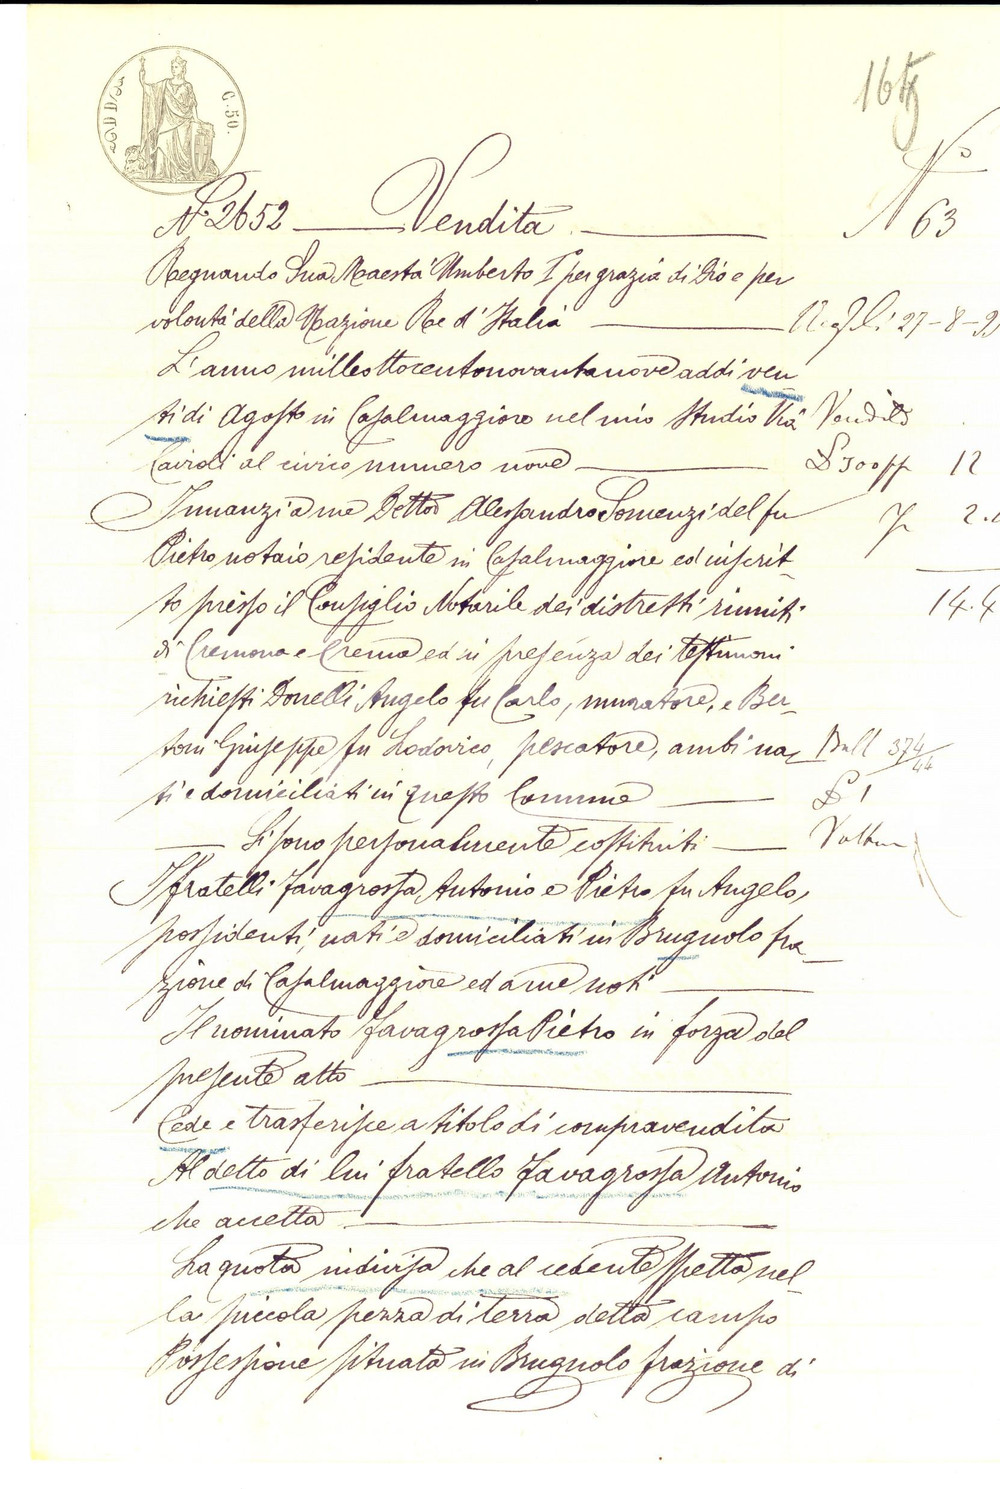 C. 50.
N.° 2652 Vendita
N° 63
Regnando Sua Maestà Umberto I° per grazia di Dio e per
volontà della Nazione Re d'Italia
27-8-99
L'anno milleottocentonovantanove addi ven
ti di Agosto in Casalmaggiore nel mio Studio Via
Vendita
Cairoli al civico numero nove
12
Innanzi a me Dottor Alessandro Somenzi del fu
Pietro notaio residente in Casalmaggiore ed inscrit-
to presso il Consiglio Notarile dei distretti riuniti
14.4
di Cremona e Crema ed in presenza dei testimoni
richiesti Donelli Angelo fu Carlo, muratore, e Ber-
toni Giuseppe fu Lodovico, pescatore, ambi na-
Boll 374/44
ti e domiciliati in questo Comune
£ 1
Si sono personalmente costituiti
Voltura
I fratelli Favagrossa Antonio e Pietro fu Angelo,
possidenti, nati e domiciliati in Brugnolo fra-
zione di Casalmaggiore ed a me noti
Il nominato Favagrossa Pietro in forza del
presente atto
Cede e trasferisce a titolo di compravendita
Al detto di lui fratello Favagrossa Antonio
che accetta
La quota indivisa che al cedente spetta nel-
la piccola pezza di terra detta campo
Possessione situata in Brugnolo frazione di